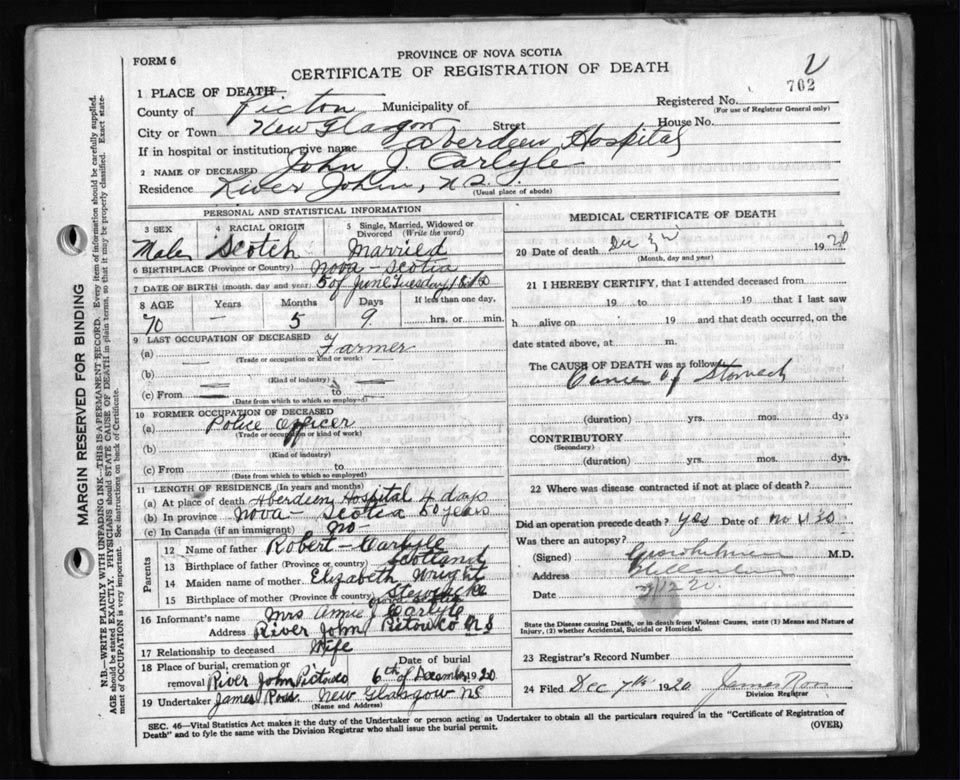 FORM 6
PROVINCE OF NOVA SCOTIA
CERTIFICATE OF REGISTRATION OF DEATH
702
1 PLACE OF DEATH
County of Pictou Municipality of
Registered No.
(For use of Registrar General only)
City or Town New Glasgow Street House No.
If in hospital or institution, give name Aberdeen Hospital
2 NAME OF DECEASED John J. Carlyle
Residence River John, N.S.
(Usual place of abode)
PERSONAL AND STATISTICAL INFORMATION
3 SEX 4 RACIAL ORIGIN 5 Single, Married, Widowed or Divorced (Write the word)
Male Scotch Married
6 BIRTHPLACE (Province or Country) Nova-Scotia
7 DATE OF BIRTH (month, day and year) 5 of June Tuesday
8 AGE Years Months Days If less than one day,
70 – 5 9 hrs. or min.
9 LAST OCCUPATION OF DECEASED
(a) Farmer
(Trade or occupation or kind of work)
(b)
(Kind of industry)
(c) From to
(Date from which to which so employed)
10 FORMER OCCUPATION OF DECEASED
(a) Police Officer
(Trade or occupation or kind of work)
(b)
(Kind of industry)
(c) From to
(Date from which to which so employed)
11 LENGTH OF RESIDENCE (In years and months)
(a) At place of death Aberdeen Hospital 4 days
(b) In province Nova-Scotia years
(c) In Canada (if an immigrant) no-
Parents
12 Name of father Robert-Carlyle
13 Birthplace of father (Province or country) Scotland
14 Maiden name of mother Elizabeth Wright
15 Birthplace of mother (Province or country)
16 Informant's name Mrs Annie Carlyle
Address River John Pictou Co N S
17 Relationship to deceased Wife
18 Place of burial, cremation or removal River John Pictou Co
Date of burial 6th of December 1920
19 Undertaker James Ross New Glasgow NS
(Name and Address)
MEDICAL CERTIFICATE OF DEATH
20 Date of death Dec 1920
(Month, day and year)
21 I HEREBY CERTIFY, that I attended deceased from
19 to 19 that I last saw
h alive on 19 and that death occurred, on the
date stated above, at m.
The CAUSE OF DEATH was as follows
Cancer of Stomach
(duration) yrs. mos. dys
CONTRIBUTORY
(Secondary)
(duration) yrs. mos. dys.
22 Where was disease contracted if not at place of death?
Did an operation precede death? Yes Date of
Was there an autopsy?
(Signed) M.D.
Address
Date
State the Disease causing Death, or in death from Violent Causes, state (1) Means and Nature of Injury, (2) whether Accidental, Suicidal or Homicidal.
23 Registrar's Record Number
24 Filed Dec 7th 1920 James Ross
Division Registrar
SEC. 46—Vital Statistics Act makes it the duty of the Undertaker or person acting as Undertaker to obtain all the particulars required in the "Certificate of Registration of
Death" and to fyle the same with the Division Registrar who shall issue the burial permit. (OVER)
MARGIN RESERVED FOR BINDING
N.B.—WRITE PLAINLY WITH UNFADING INK—THIS IS A PERMANENT RECORD. Every item of information should be carefully supplied.
AGE should be stated EXACTLY. PHYSICIANS should STATE CAUSE OF DEATH in plain terms, so that it may be properly classified. Exact statement of OCCUPATION is very important. See instructions on back of Certificate.